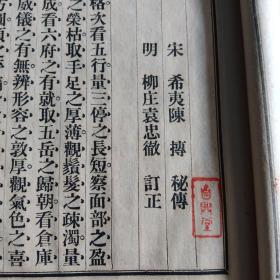 宋 希夷陳 摶 秘傳
明 柳庄袁忠徹 訂正
格次看五行量三停之長短察面部之盈
之榮枯取手足之厚薄觀鬚髮之疎濁量
成看六府之有就取五岳之歸朝看倉庫
威儀之有無辨形容之敦厚觀氣色之喜